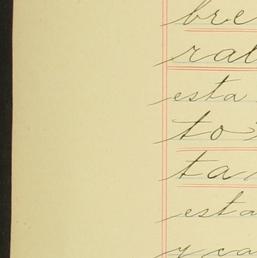 bre
ral
esta
to
ta
esta
y ca